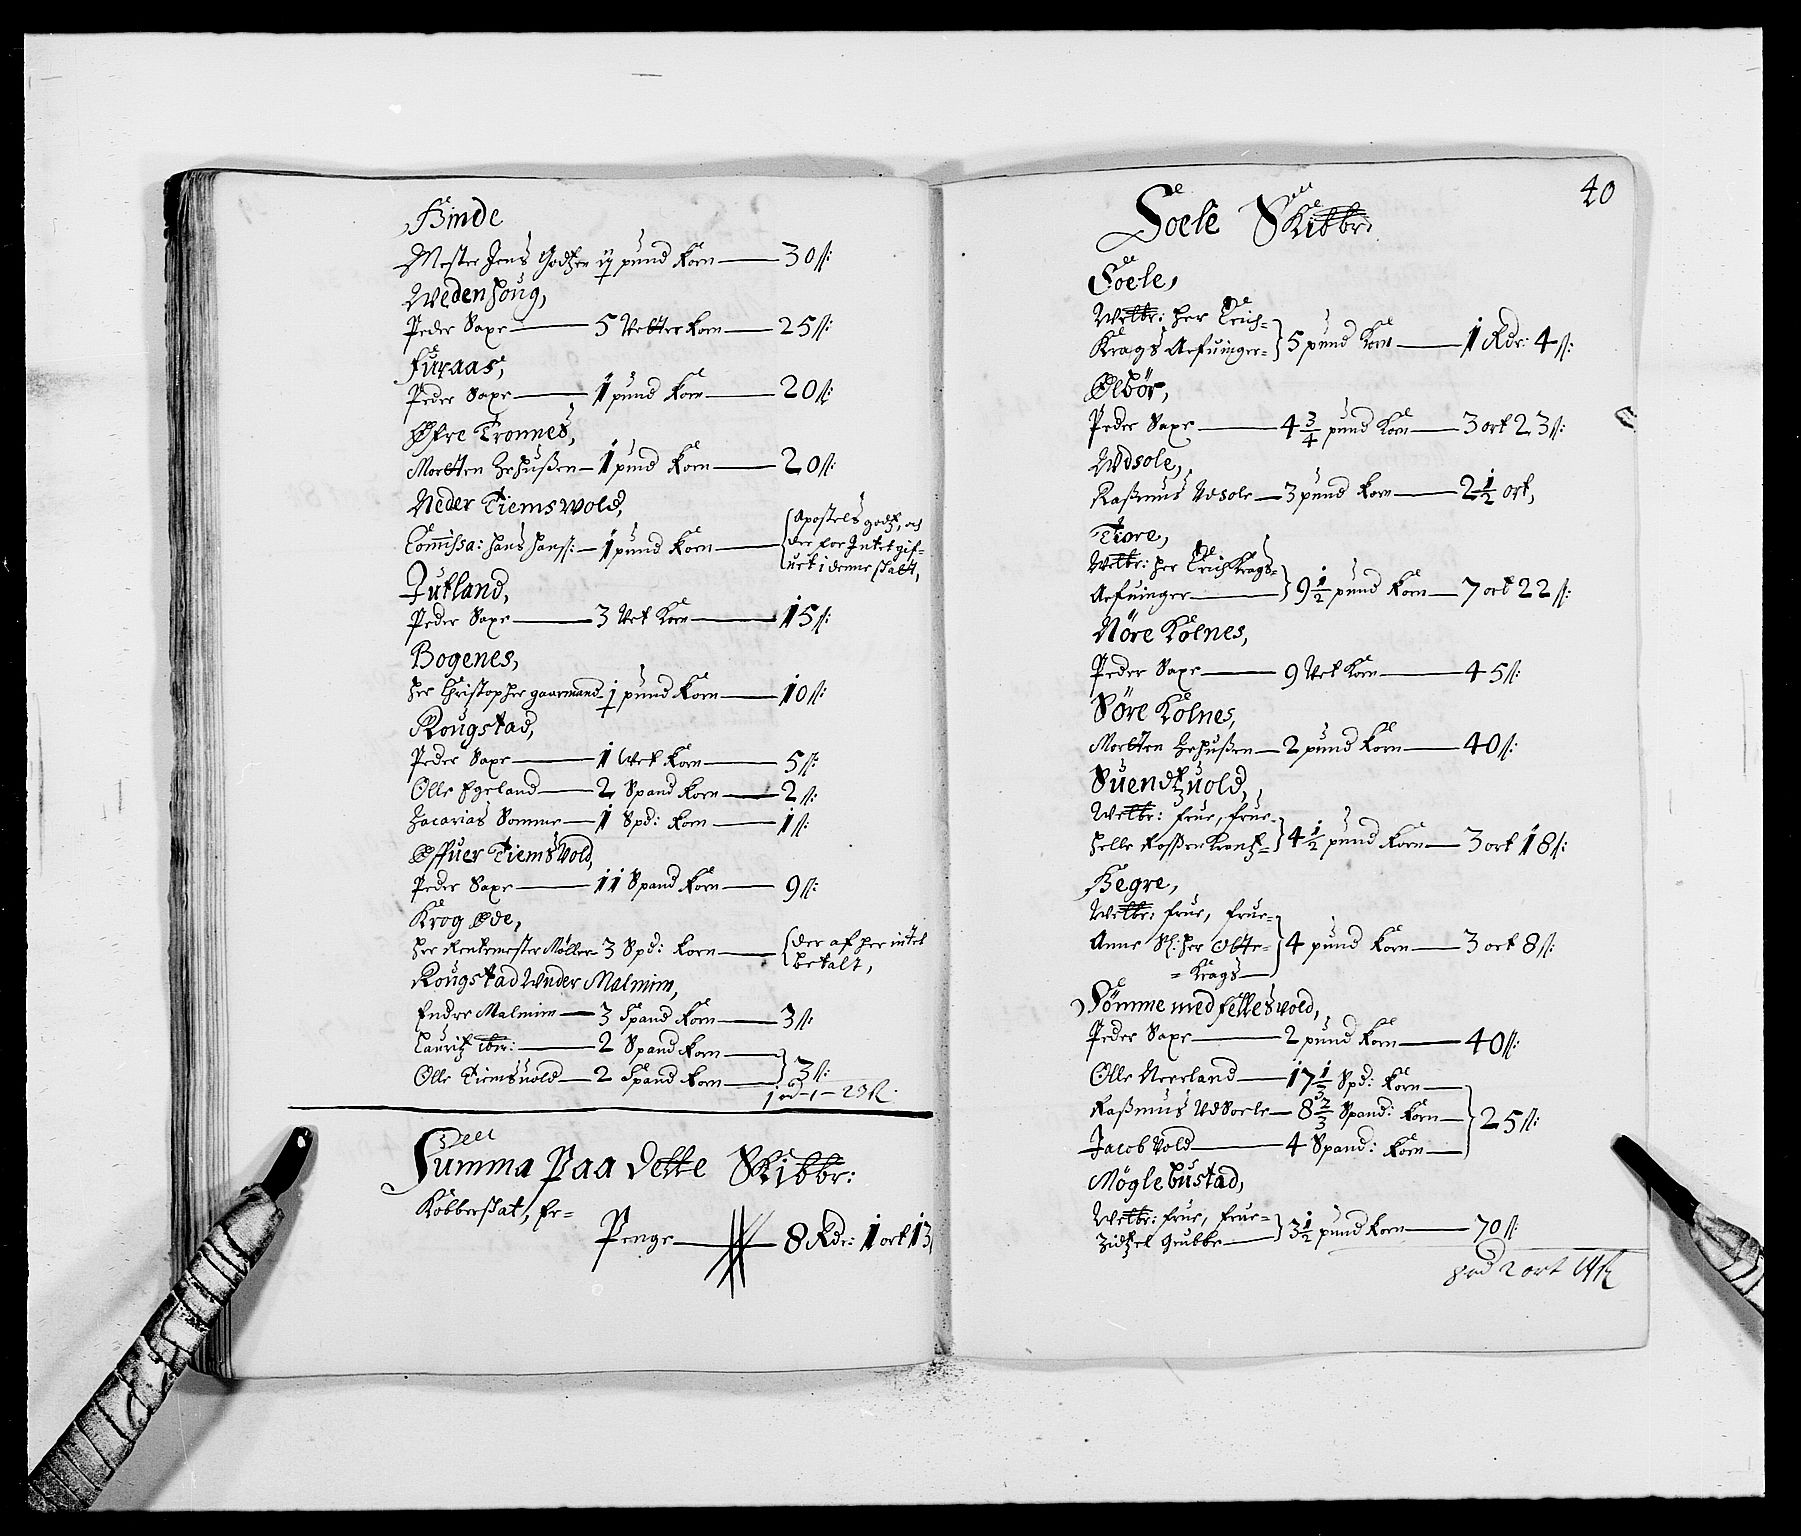 Hinde
Mester Jens Godtzen 1½ pund Korn — 30 ß:
Wedenhoug,
Peder Saxe — 5 Vetter Korn — 25 ß:
Furaas,
Peder Saxe — 1 pund Korn — 20 ß:
Øfre Tronnes,
Morten Jehussen — 1 pund Korn — 20 ß:
Neder Tiemswold,
Commissa: Hans Hanß: — 1 pund Korn — Apostels godtz, och
der for Intet gif-
uet i denne skatt,
Jutland,
Peder Saxe — 3 Vet Korn — 15 ß:
Bogenes,
Her Christopher gaarmand ½ pund Korn — 10 ß:
Rougstad,
Peder Saxe — 1 Wet Korn — 5 ß:
Olle Egeland — 2 Spand Korn — 2 ß:
Zacarias Somme — 1 Spd: Korn — 1 ß:
Øffuer Tiemsvold,
Peder Saxe — 11 Spand Korn — 9 ß:
Krog Øde,
Her Rentemester Møller — 3 Spd: Korn — der af her intet
betalt,
Rougstad Wnder Malmim,
Endre Malmim — 3 Spand Korn — 3 ß:
Lauritz ibm: — 2 Spand Korn —
Olle Tiemsuold — 2 Spand Korn — 3 ß:
Summa Paa Dette Skibbr:
Kobberskat, Er=
Penge — 8 Rdr: 1 ort 13
40
Soele Skibbr:
Soele,
Welbr: Her Erich=
Krags Arfuinger= 5 pund Korn — 1 Rdr: 4 ß:
Ølbör,
Peder Saxe — 4 3/4 pund Korn — 3 ort 23 ß:
Wdsole,
Rasmus Vdsole — 3 pund Korn — 2 1/2 ort,
Tiore,
Welbr: Her Erich Krags=
Arfuinger — 9 1/2 pund Korn — 7 ort 22 ß:
Nöre Kolnes,
Peder Saxe — 9 Vet Korn — 45 ß:
Söre Kolnes,
Morten Jehussen — 2 pund Korn — 40 ß:
Suendtzuold,
Welbr: frue, frue=
Helle Rossenkrantz= 4 1/2 pund Korn — 3 ort 18 ß:
Hegre,
Welbr: frue, frue=
Anne Sl: Her Otte= 4 pund Korn — 3 ort 8 ß:
= Krags —
Sömme med Felleswold,
Peder Saxe — 2 pund Korn — 40 ß:
Olle Neeeland — 17 1/3 Spd: Korn —
Rasmus VdSoele — 8 2/3 Spand: Korn — 25 ß:
Jacob Vold — 4 Spand: Korn —
Möglebustad,
Welbr: frue, frue=
Zidtzel Grubbe — 3 1/2 pund Korn — 70 ß: